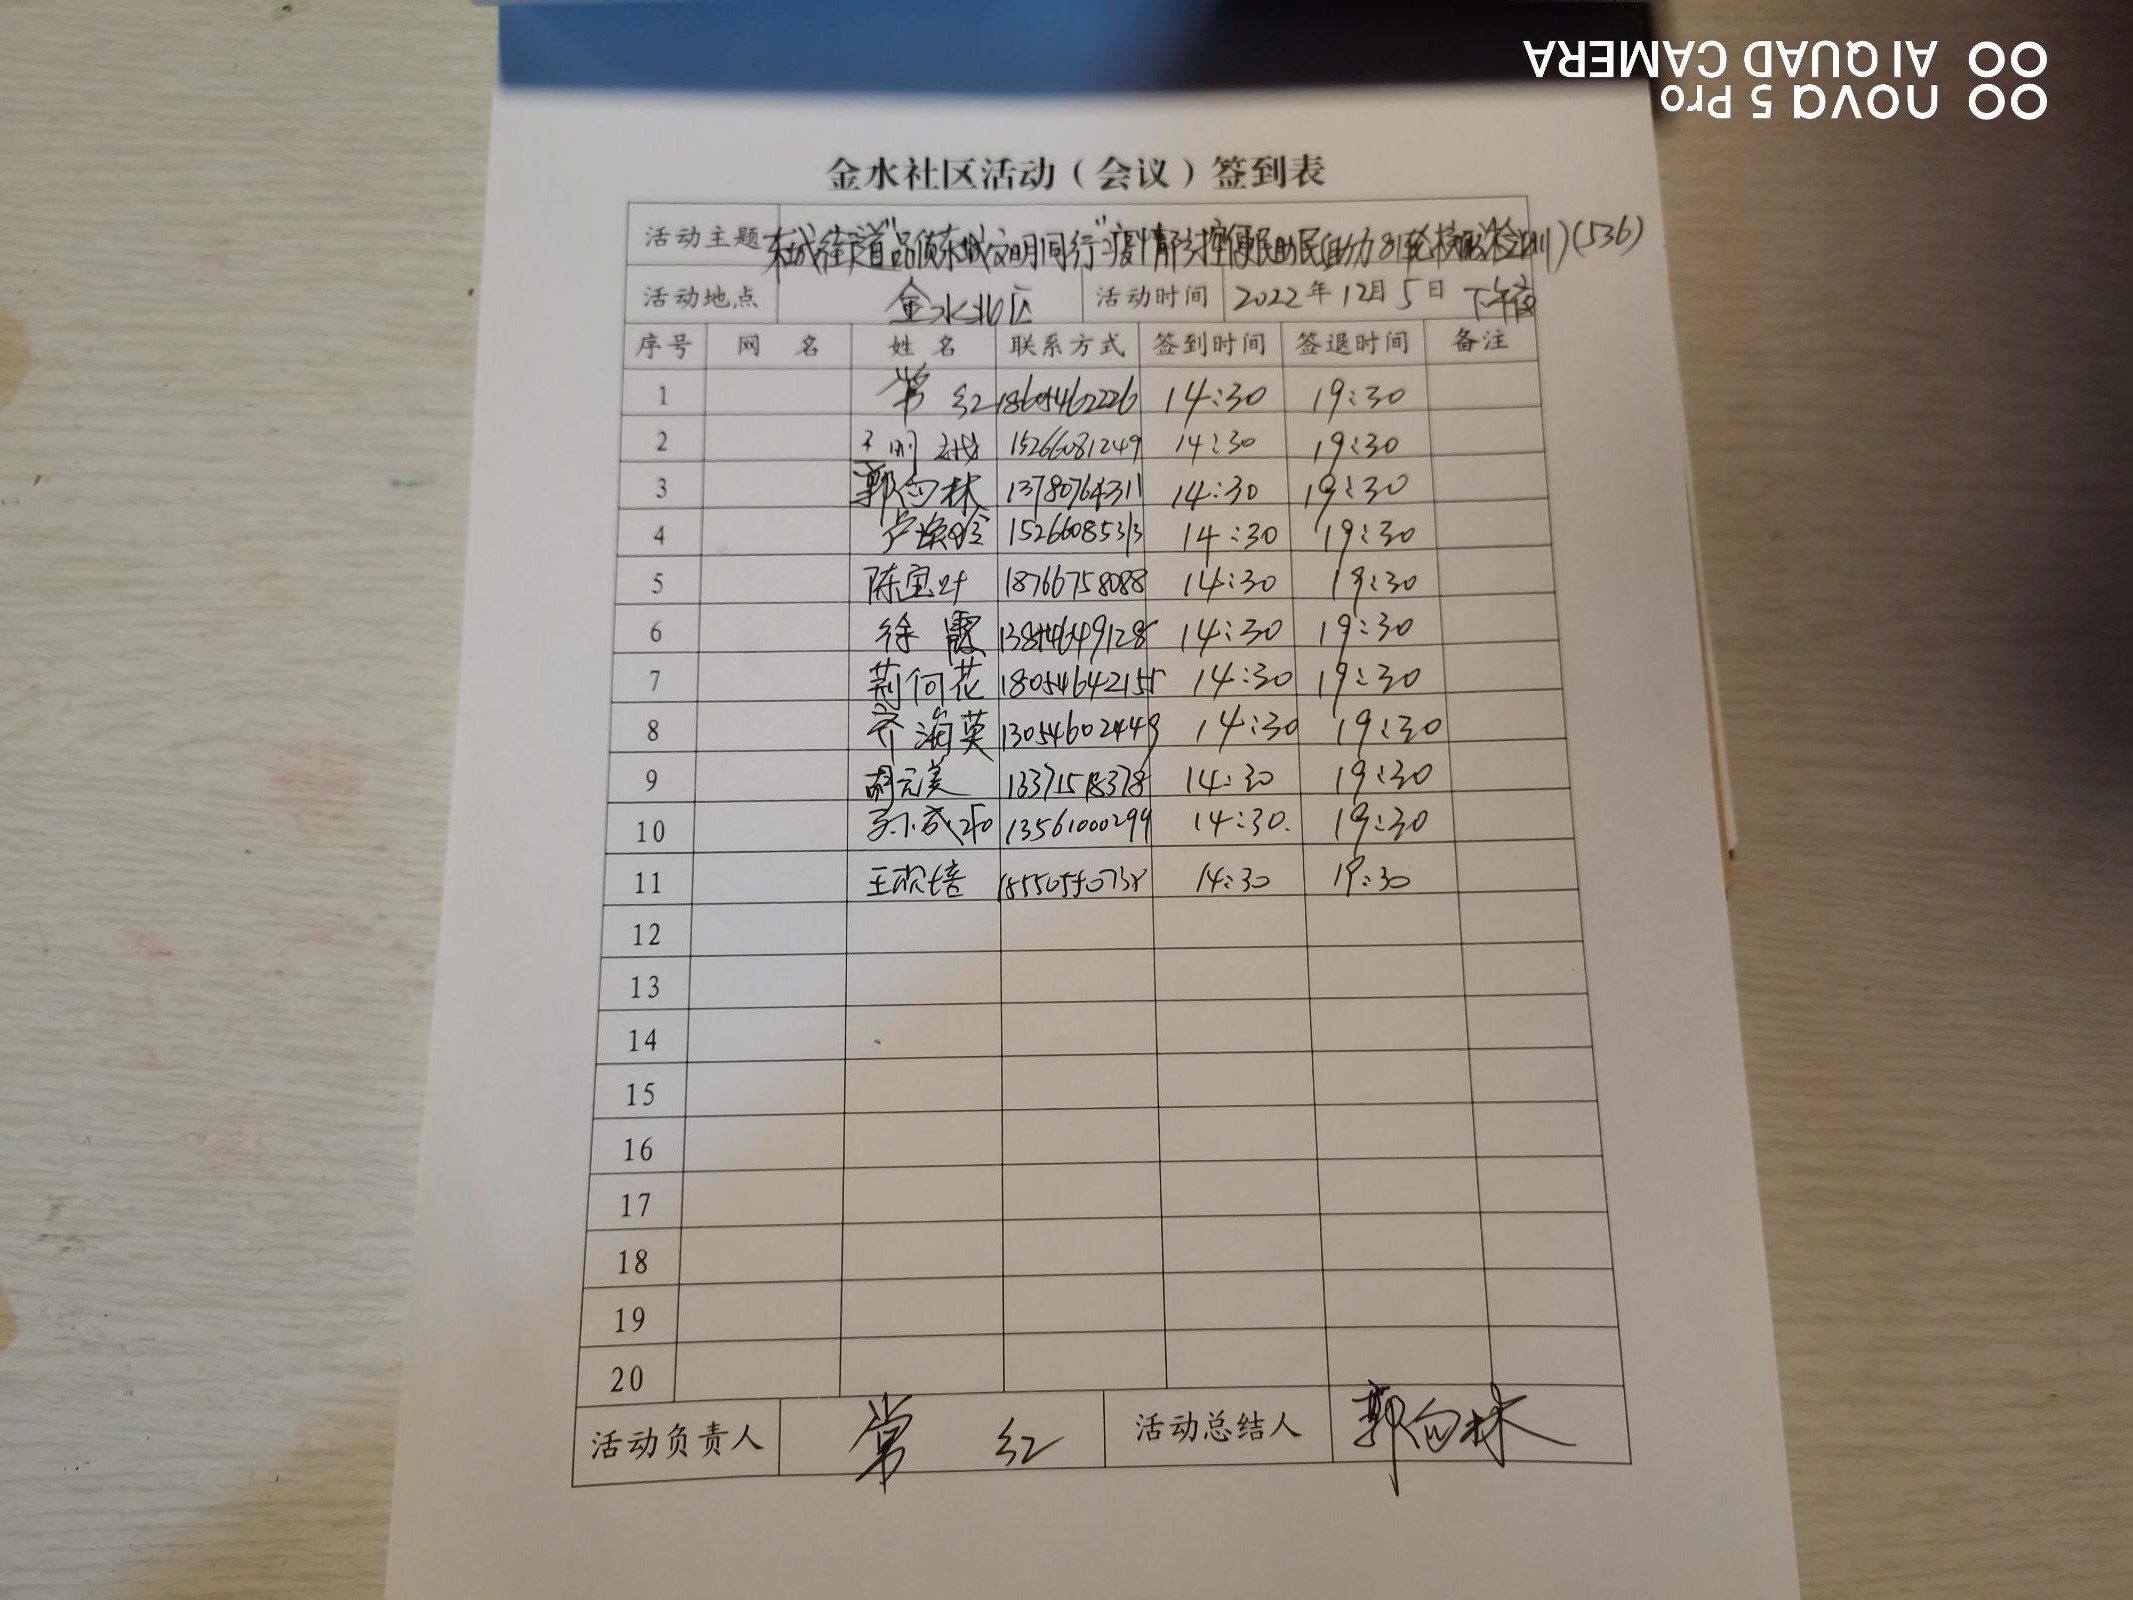 AI QUAD CAMERA
nova 5 Pro
金水社区活动（会议）签到表
活动主题 东城街道"品质东城文明同行"疫情防控便民助民(助力81轮核酸检测)(536)
活动地点 金水北区 活动时间 2022年12月5日 下午
序号 网名 姓名 联系方式 签到时间 签退时间 备注
1 常红 14:30 19:30
2 15266081249 14:30 19:30
3 郭向林 13780764311 14:30 19:30
4 15266085313 14:30 19:30
5 陈宝叶 18766758088 14:30 19:30
6 徐霞 13854649128 14:30 19:30
7 荆何花 18054642155 14:30 19:30
8 齐海英 13054602449 14:30 19:30
9 胡元美 13371518378 14:30 19:30
10 13561000299 14:30. 19:30
11 14:30 19:30
12
13
14
15
16
17
18
19
20
活动负责人 常红 活动总结人 郭向林